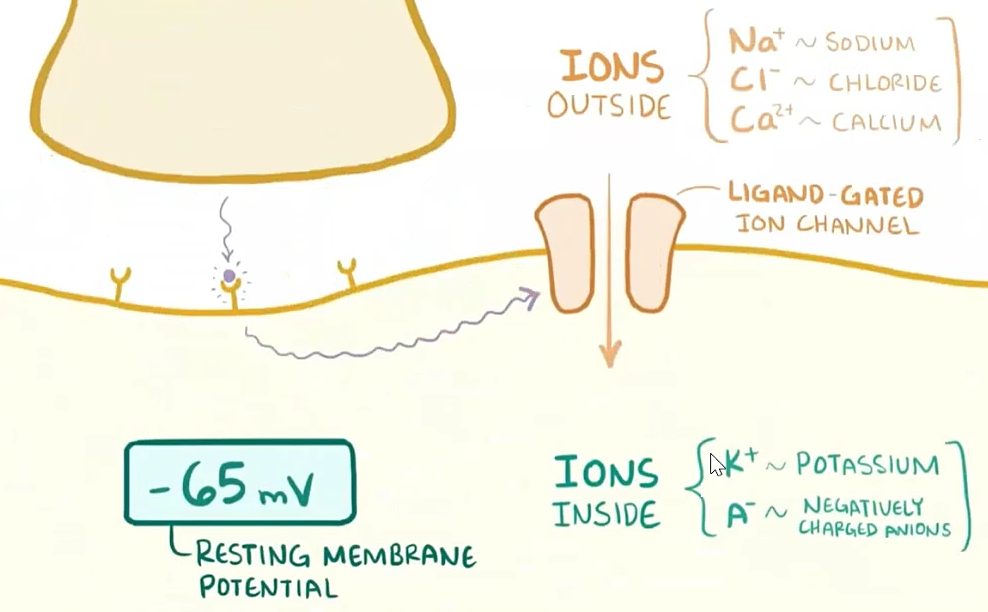 IONS
OUTSIDE
Na⁺ ~ SODIUM
Cl⁻ ~ CHLORIDE
Ca²⁺ ~ CALCIUM
LIGAND-GATED
ION CHANNEL
-65 mV
RESTING MEMBRANE
POTENTIAL
IONS
INSIDE
K⁺ ~ POTASSIUM
A⁻ ~ NEGATIVELY
CHARGED ANIONS